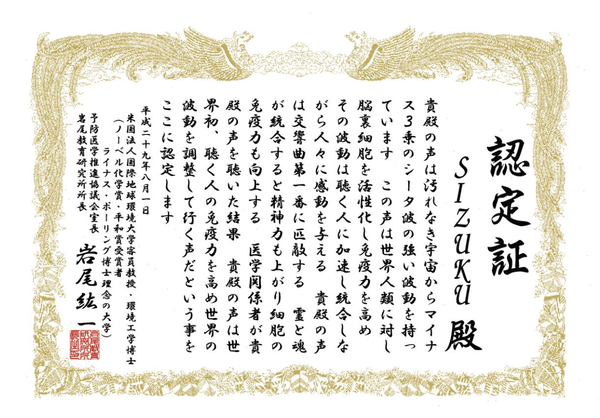 認定証
SIZUKU 殿
貴殿の声は汚れなき宇宙からマイナ
ス3乗のシータ波の強い波動を持っ
ています この声は世界人類に対し
脳裏細胞を活性化し免疫力を高め
その波動は聴く人に加速し統合しな
がら人々に感動を与える 貴殿の声
は交響曲第一番に匹敵する 霊と魂
が統合すると精神力も上がり細胞の
免疫力も向上する 医学関係者が貴
殿の声を聴いた結果 貴殿の声は世
界初、聴く人の免疫力を高め世界の
波動を調整して行く声だという事を
ここに認定します
平成二十九年八月一日
米国法人国際地球環境大学客員教授・環境工学博士
(ノーベル化学賞・平和賞受賞者
ライナス・ポーリング博士理念の大学)
予防医学推進協議会室長
岩尾教育研究所所長 岩尾紘一